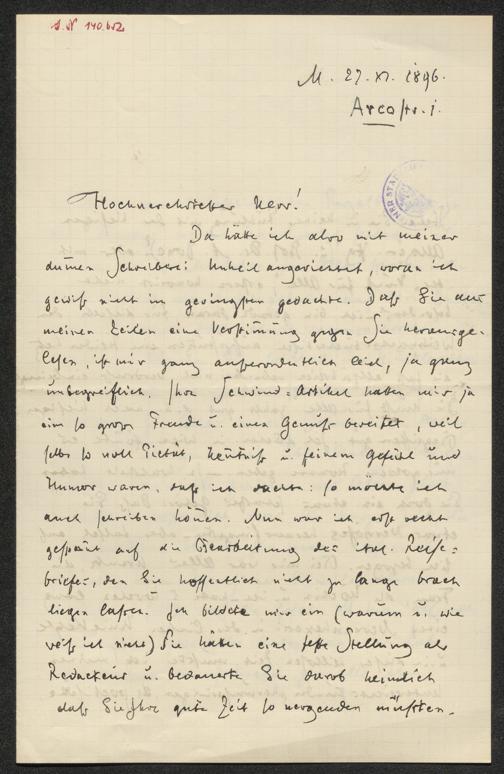 I. N 140.652
M. 27. XI. 1896.
Arcostr. 1.
Hochverehrtester Herr!
Da hätte ich also mit meiner
dummen Schreiberei Unheil angerichtet, woran ich
gewiß nicht im geringsten gedachte. Daß Sie aus
meinen Zeilen eine Verstimmung gegen Sie herausge-
lesen, ist mir ganz außerordentlich leid, ja ganz
unbegreiflich. Ihre Schwind-Artikel haben mir ja
ein so großes Freude u. einen Genuß bereitet, weil
selbe so voll Pietät, Kenntniß u. feinem Gefühl und
Humor waren, daß ich dachte: so möchte ich
auch schreiben können. Nun war ich erst recht
gespannt auf die Bearbeitung der ital. Reise-
briefe, den Sie hoffentlich nicht zu lange brach
liegen lassen. Ich bildete mir ein (warum u. wie
weiß ich nicht) Sie hätten eine feste Stellung als
Redacteur u. bedauerte Sie darob heimlich
daß Sie Ihre gute Zeit so vergeuden müßten.